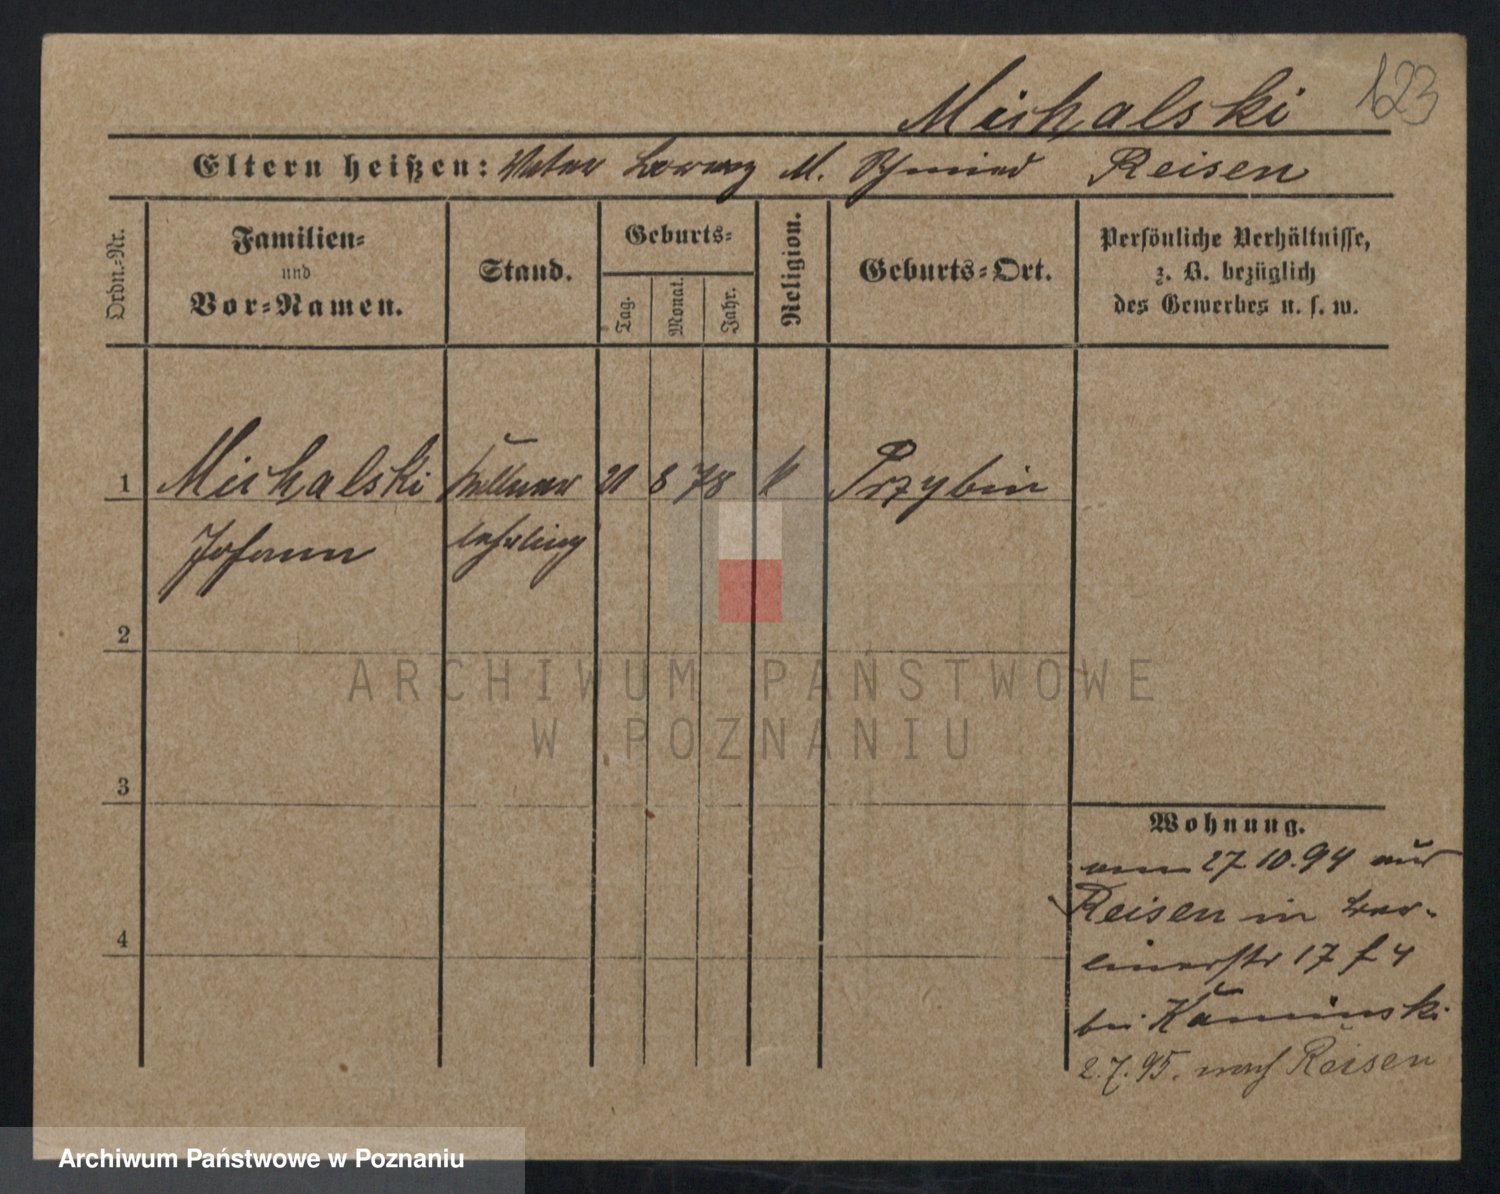 123
Michalski
Eltern heißen: Vater Lorenz M. Schmied Reisen
Ordn.-Nr.
Familien-
und
Vor-Namen.
Stand.
Geburts-
Tag.
Monat.
Jahr.
Religion.
Geburts-Ort.
Persönliche Verhältnisse,
z. B. bezüglich
des Gewerbes u. s. w.
1 Michalski Kellner 21 8 78 k Przybin
Johann lehrling
2
3
4
Wohnung.
vom 27.10.94 aus
Reisen in Ber-
linerstr 17 f 4
bei Kaminski
2.7.95. nach Reisen
ARCHIWUM PAŃSTWOWE
W POZNANIU
Archiwum Państwowe w Poznaniu